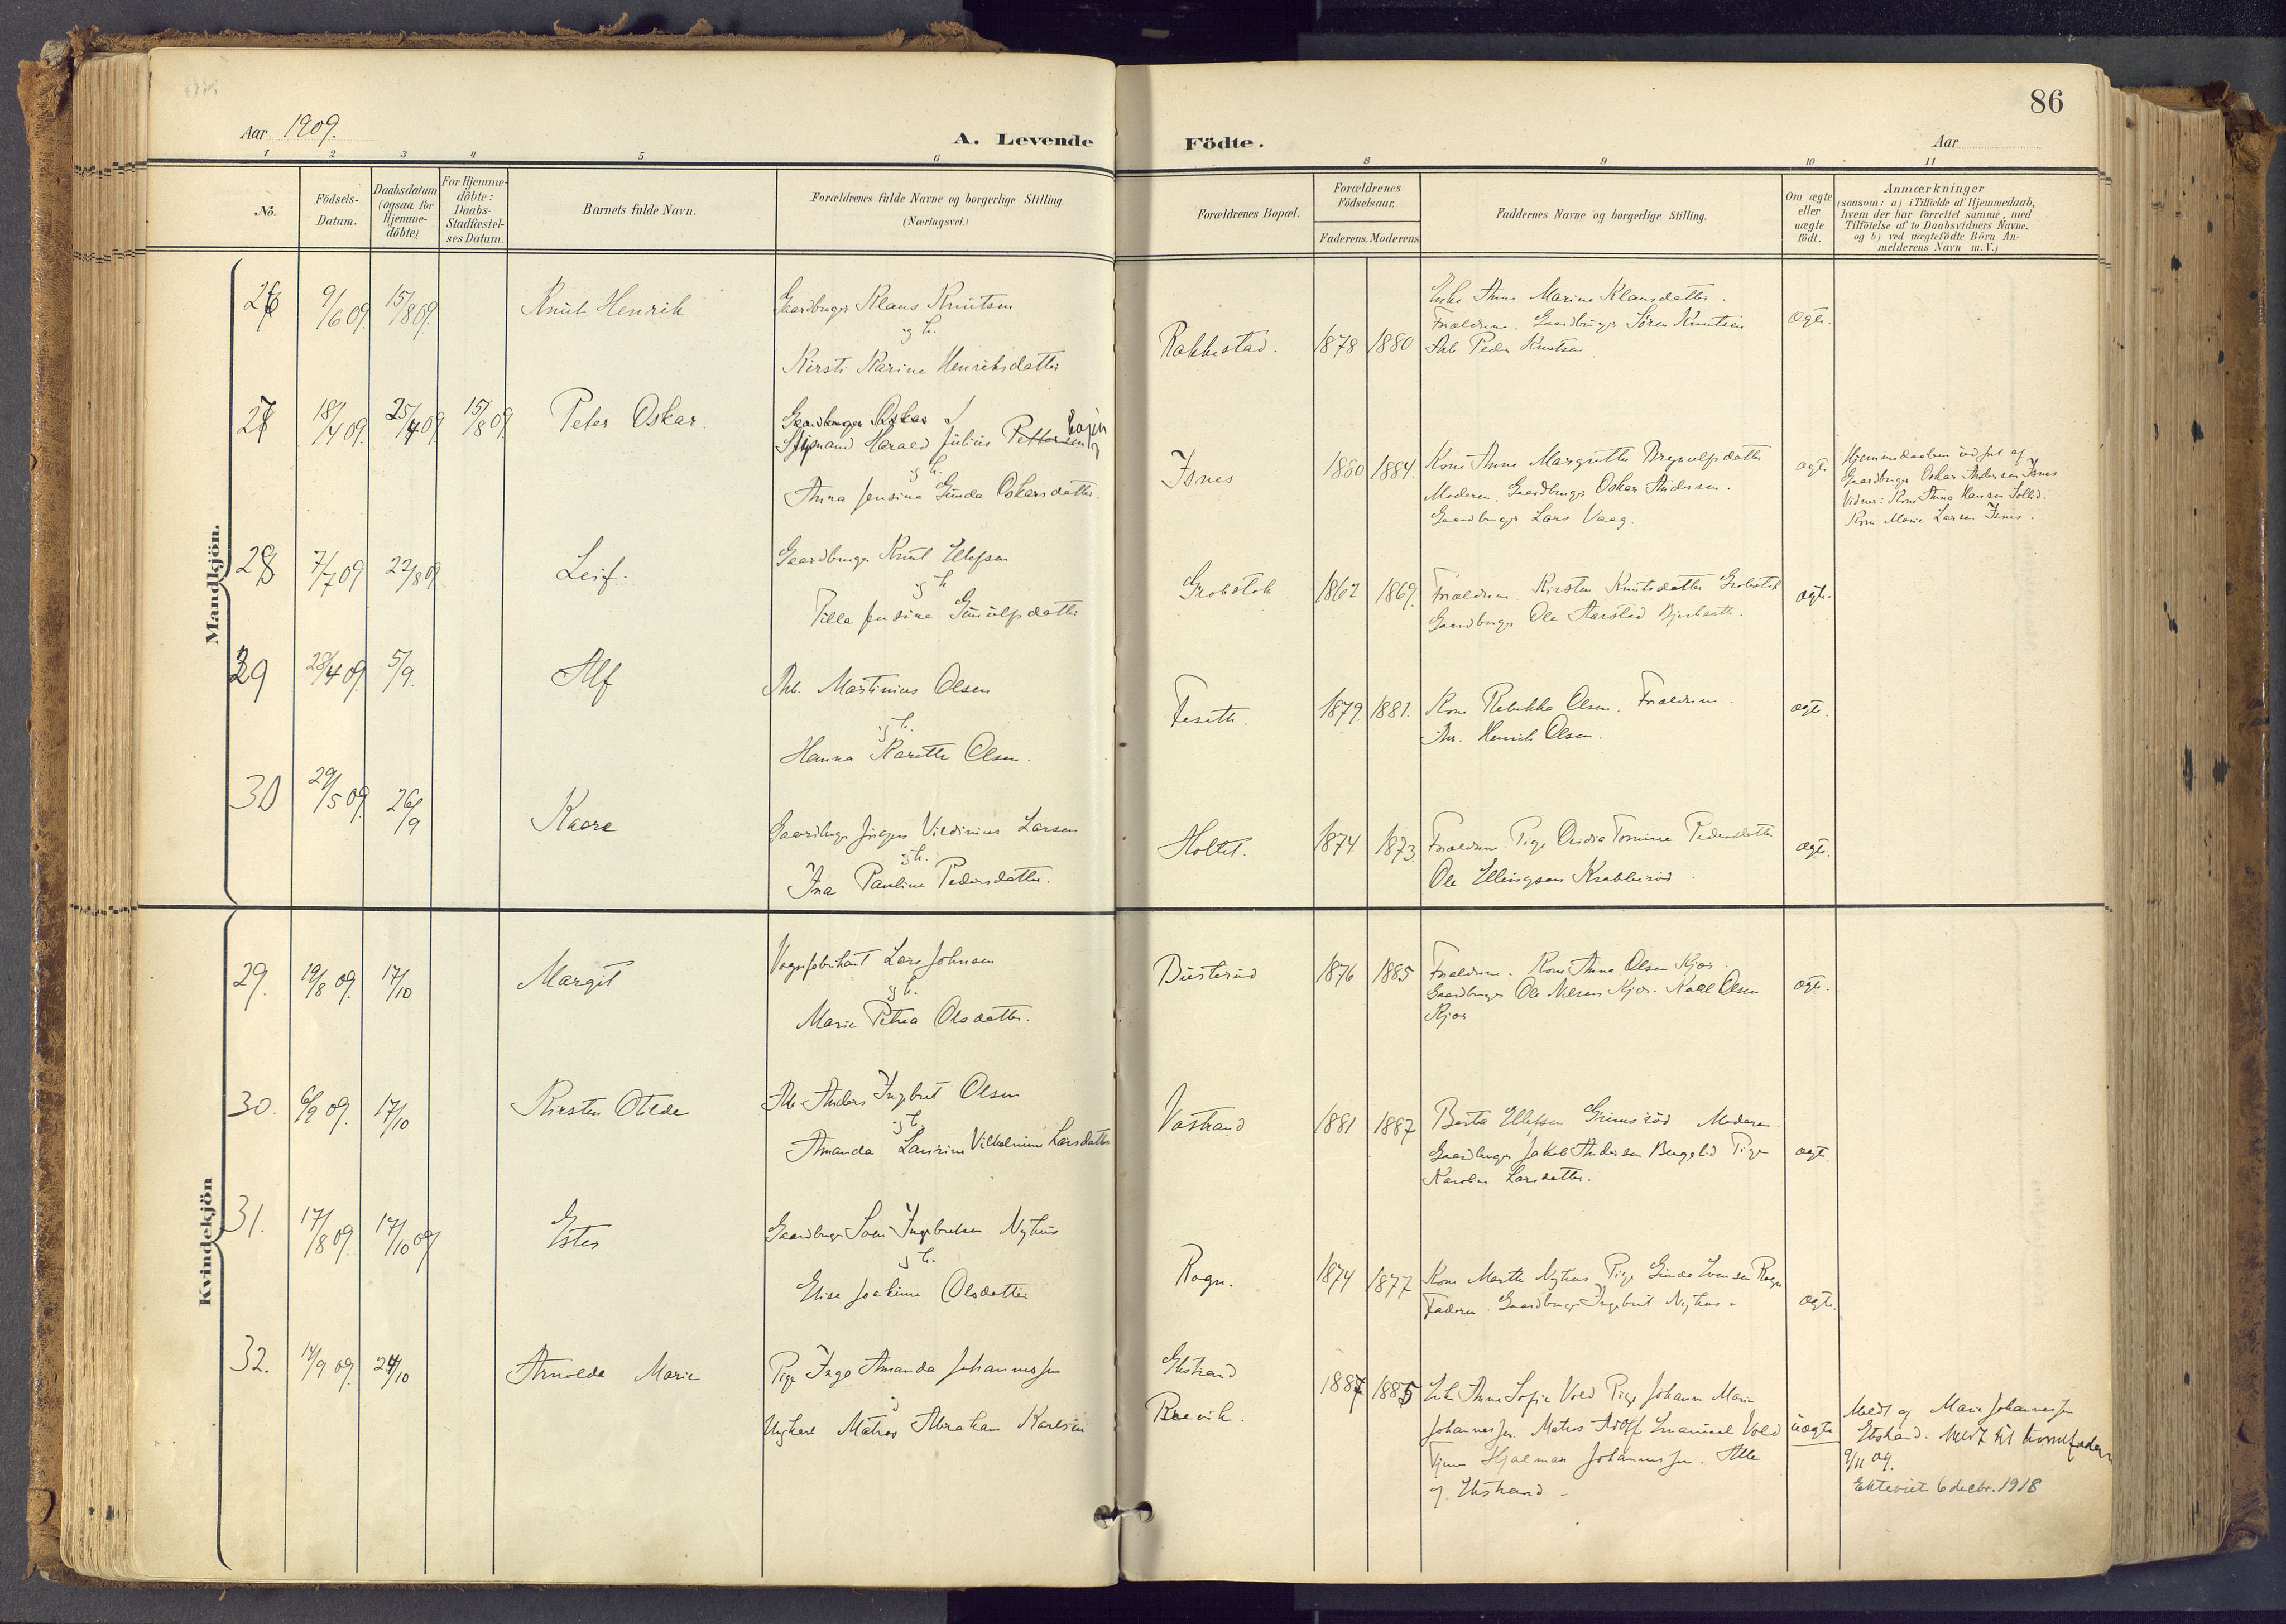 86
Aar 1909.
A. Levende Födte.
Aar
1 2 3 4 5 6 8 9 10 11
No.
Födsels-Datum.
Daabsdatum (ogsaa for Hjemme-döbte)
For Hjemme-döbte: Daabs-Stadfæstel-ses Datum.
Barnets fulde Navn.
Forældrenes fulde Navne og borgerlige Stilling. (Næringsvei.)
Forældrenes Bopæl.
Forældrenes Födselsaar.
Faderens. Moderens.
Faddernes Navne og borgerlige Stilling.
Om ægte eller uægte födt.
Anmærkninger
(saasom: a) i Tilfælde af Hjemmedaab,
hvem der har forrettet samme, med
Tilföielse af to Daabsvidners Navne.
og b) ved uægtefödte Börn An-
melderens Navn m. V.)
Mandkjön.
26 9/6 09. 15/8 09. Knut Henrik
Gaardbruger Klaus Knutsen
og h.
Kirsti Karine Henriksdatter
Rakkestad. 1878 1880
Enke Anne Marine Klausdatter.
Forældrene. Gaardbruger Søren Knutsen
Arb. Peder Knutsen.
ægte.
27 18/4 09. 25/4 09 15/8 09. Peter Oskar.
Gaardbruger Oskar
Harald Julius Pettersen
og h.
Anna Jensine Gunda Oskarsdatter.
Isnes 1880 1884.
Kone Anne Margrethe Brynulfsdatter
Moderen. Gaardbruger Oskar Andersen.
Gaardbruger Lars Vaag.
ægte
Hjemmedaaben udført af
Gaardbruger Oskar Andersen Isnes
Vidner: Kone Anna Hansen
Kone Marie Larsen Isnes.
28 7/7 09 22/8 09 Leif.
Gaardbruger Knut Ellefsen
og h
Tilla Jensine Gunulfsdatter
Grobstok 1862 1869.
Forældrene Kirsten Knutsdatter Grobstok
Gaardbruger Ole Aarstad
ægte.
29 28/4 09. 5/9. Alf
Arb. Martinius Olsen
og h.
Hanna Karethe Olsen.
1879. 1881.
Kone Rebekka Olsen. Forældrene.
Arb. Henrik Olsen.
ægte.
30 29/5 09. 26/9 Kaare
Gaardbruger Jørgen Larsen
og h.
Ina Pauline Pedersdatter.
Holtet. 1874 1873.
Forældrene. Pige Ovidia Tomine Pedersdatter
Ole Ellingsen Krabberød.
ægte.
Kvindekjön
29. 19/8 09. 17/10 Margit
Vognfabrikant Lars Johnsen
og h.
Marie Petrea Olsdatter.
1876 1885
Forældrene. Kone Anna Olsen Kjær.
Gaardbruger Ole Nilsen Kjær. Karl Olsen
Kjær
ægte.
30. 6/9 09. 17/10 Kirsten Otilde
Arb. Anders Ingbret Olsen
og h.
Amanda Laurine Vilhelmine Larsdatter
Vastrand 1881 1887
Berta Ellefsen Grimsrød Moderen
Gaardbruger Jakob Andersen Pige
Karoline Larsdatter.
ægte.
31. 17/8 09. 17/10 09 Ester
Gaardbruger Sven Ingebretsen Nyhus
og h.
Elise Joakime Olsdatter
Rogn. 1874 1877
Kone Marthe Nyhus Pige Gunda Rogn
Faderen. Gaardbruger Ingebret Nyhus.
ægte.
32. 14/9 09. 24/10 Arnolda Marie
Pige Inga Amanda Johannessen
Ungkarl Matros Abraham Karlsen
Ekstrand
Brevik. 1887 1885
Enke Anne Sofie Vold Pige Johanne Marie
Johannessen. Matros Adolf Emanuel Vold
Hjalmar Johannessen. Alle
af Ekstrand.
uægte
Meldt af Marie Johannessen
Ekstrand. Meldt til
9/11 09.
Ekteviet 6 decbr. 1918